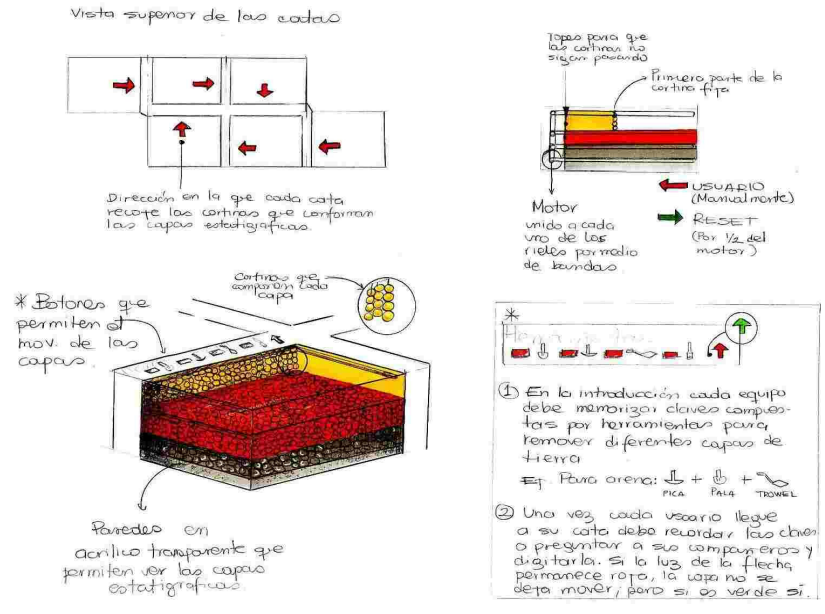 Vista superior de las catas
Dirección en la que cada cata
recoge las cortinas que conforman
las capas estatigráficas.
Topes para que
las cortinas no
sigan pasando
Primera parte de la
cortina fija
Motor
unido a cada
uno de los
rieles por medio
de bandas.
USUARIO
(Manualmente)
RESET
(Por 1/2 del
motor)
* Botones que
permiten el
mov. de las
capas.
Cortinas que
componen cada
capa
Paredes en
acrílico transparente que
permiten ver las capas
estatigráficas.
*
① En la introducción cada equipo
debe memorizar claves compues-
tas por herramientas para
remover diferentes capas de
tierra
Ej. Para arena: + +
PICA PALA TROWEL
② Una vez cada usuario llegue
a su cata debe recordar las claves
o preguntar a sus compañeros y
digitarla. Si la luz de la flecha
permanece roja, la capa no se
deja mover, pero si es verde sí.